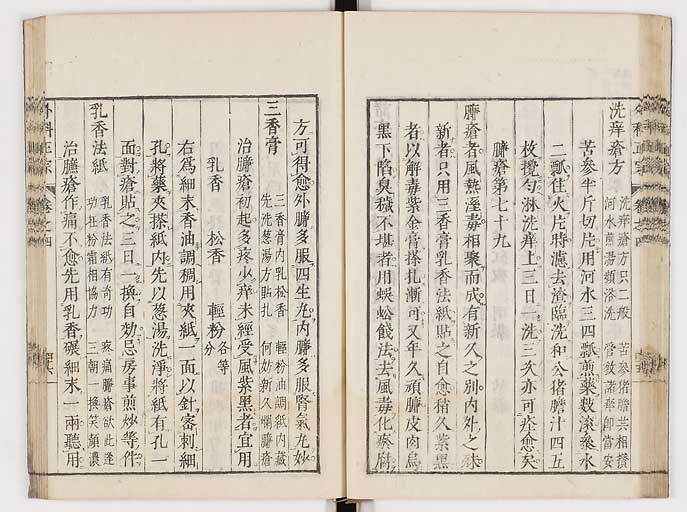 洗痒瘡方
洗痒瘡方只二般
苦參猪膽共相攢
河水煎湯頻浴洗
管教諸痒即當安
苦參半斤切片用河水三四瓢煎藥數滾摻水
二瓢住火片時濾去渣臨洗和公猪膽汁四五
枚攪勻淋洗痒上三日一洗三次亦可痊愈矣
臁瘡第七十九
臁瘡者風熱溼毒相聚而成有新久之別内外之殊
新者只用三香膏乳香法紙貼之自愈稽久紫黑
者以解毒紫金膏搽扎漸可又年久頑臁皮肉烏
黑下陷臭穢不堪者用蜈蚣餞法去風毒化瘀腐
方可得愈外臁多服四生丸内臁多服腎氣丸妙
三香膏
三香膏内乳松香
輕粉油調紙内藏
先洗葱湯方貼扎
何妨新久爛臁瘡
治臁瘡初起多疼少痒未經受風紫黑者宜用
乳香
松香
輕粉各等分
右爲細末香油調稠用夾紙一面以針客刺細
孔將藥夾搽紙内先以葱湯洗淨將紙有孔一
面對瘡貼之三日一換自効忌房事煎炒等件
乳香法紙
乳香法紙有奇功
疼痛臁瘡欲此逢
功在粉霜相協力
三朝一換笑顔濃
治臁瘡作痛不愈先用乳香碾細末一兩聽用
外科正宗
卷之四